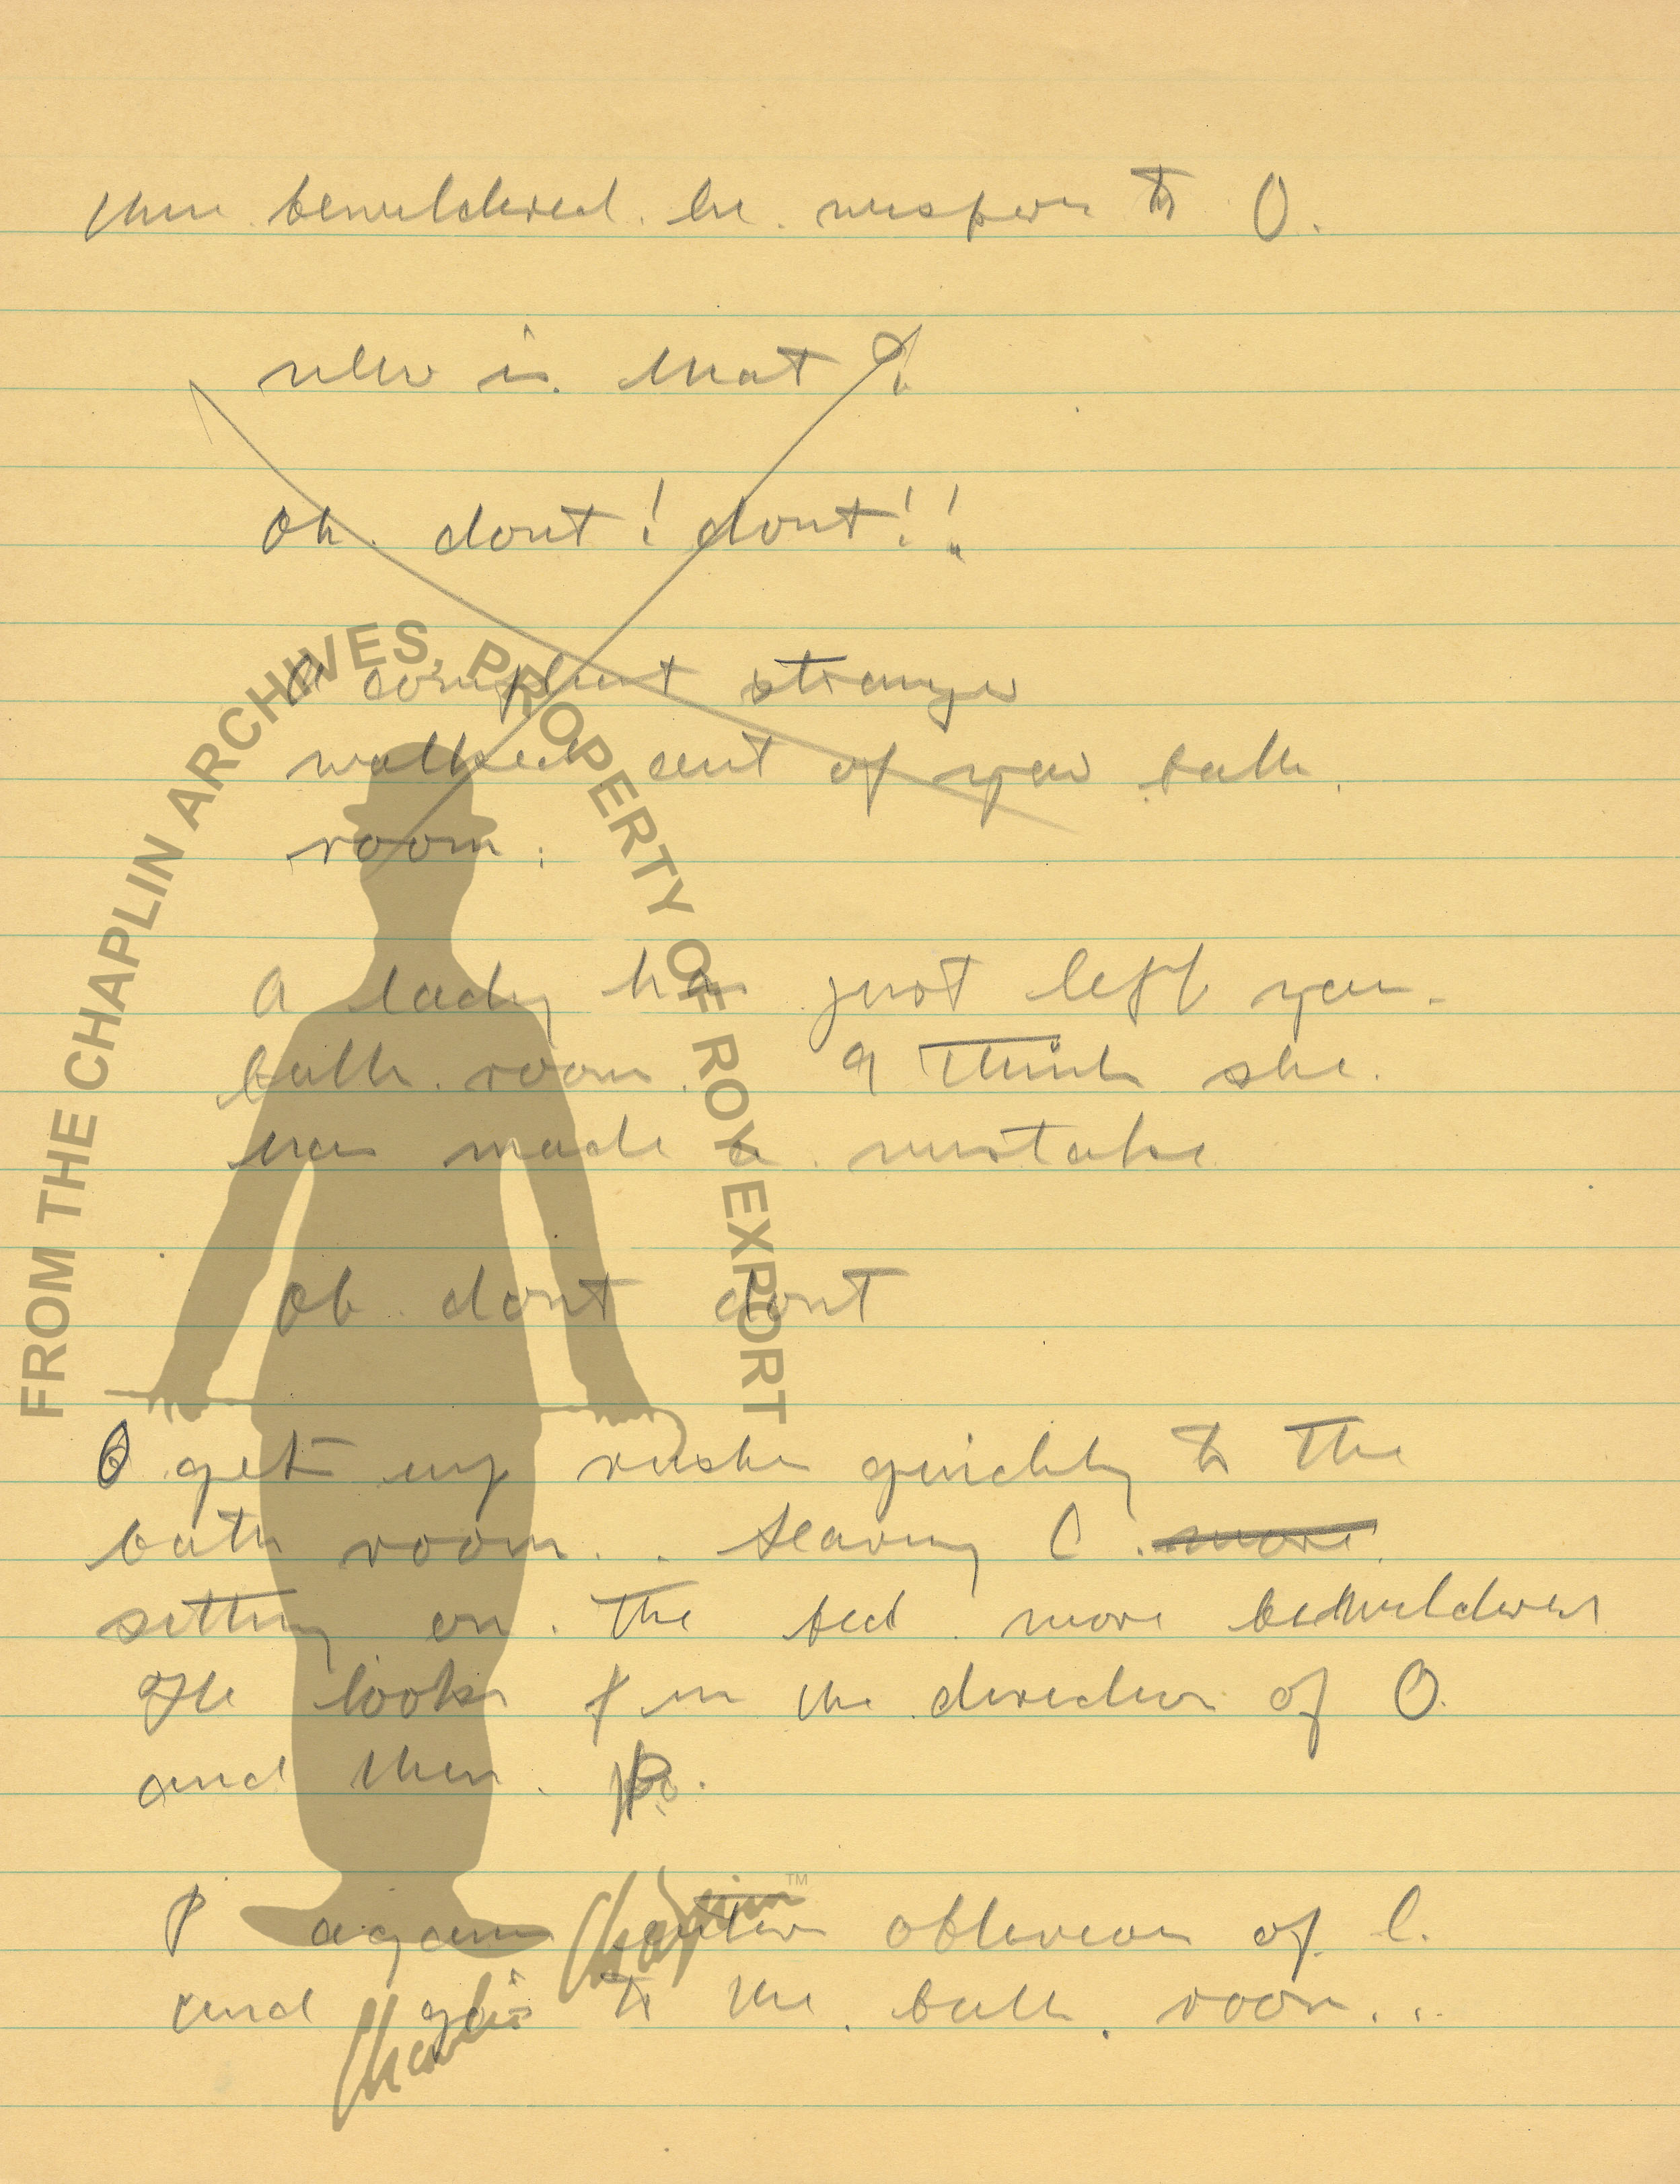 then bewildered. he. wispers to O.
who is. that ?
Oh. dont! dont!!
A complent stranger
walked out of your bath.
room.
A lady has just left your
bath. room. I think she.
has made a. mistake
Oh. dont dont
O gets up rushes quickly to the
bath room.. Leaving C. more
sitting on. the bed. more bewildered
He looks in the direction of O.
and then. P.
P again enters oblivious of C.
and goes to the. bath. room...
FROM THE CHAPLIN ARCHIVES, PROPERTY OF ROY EXPORT
Charlie Chaplin™